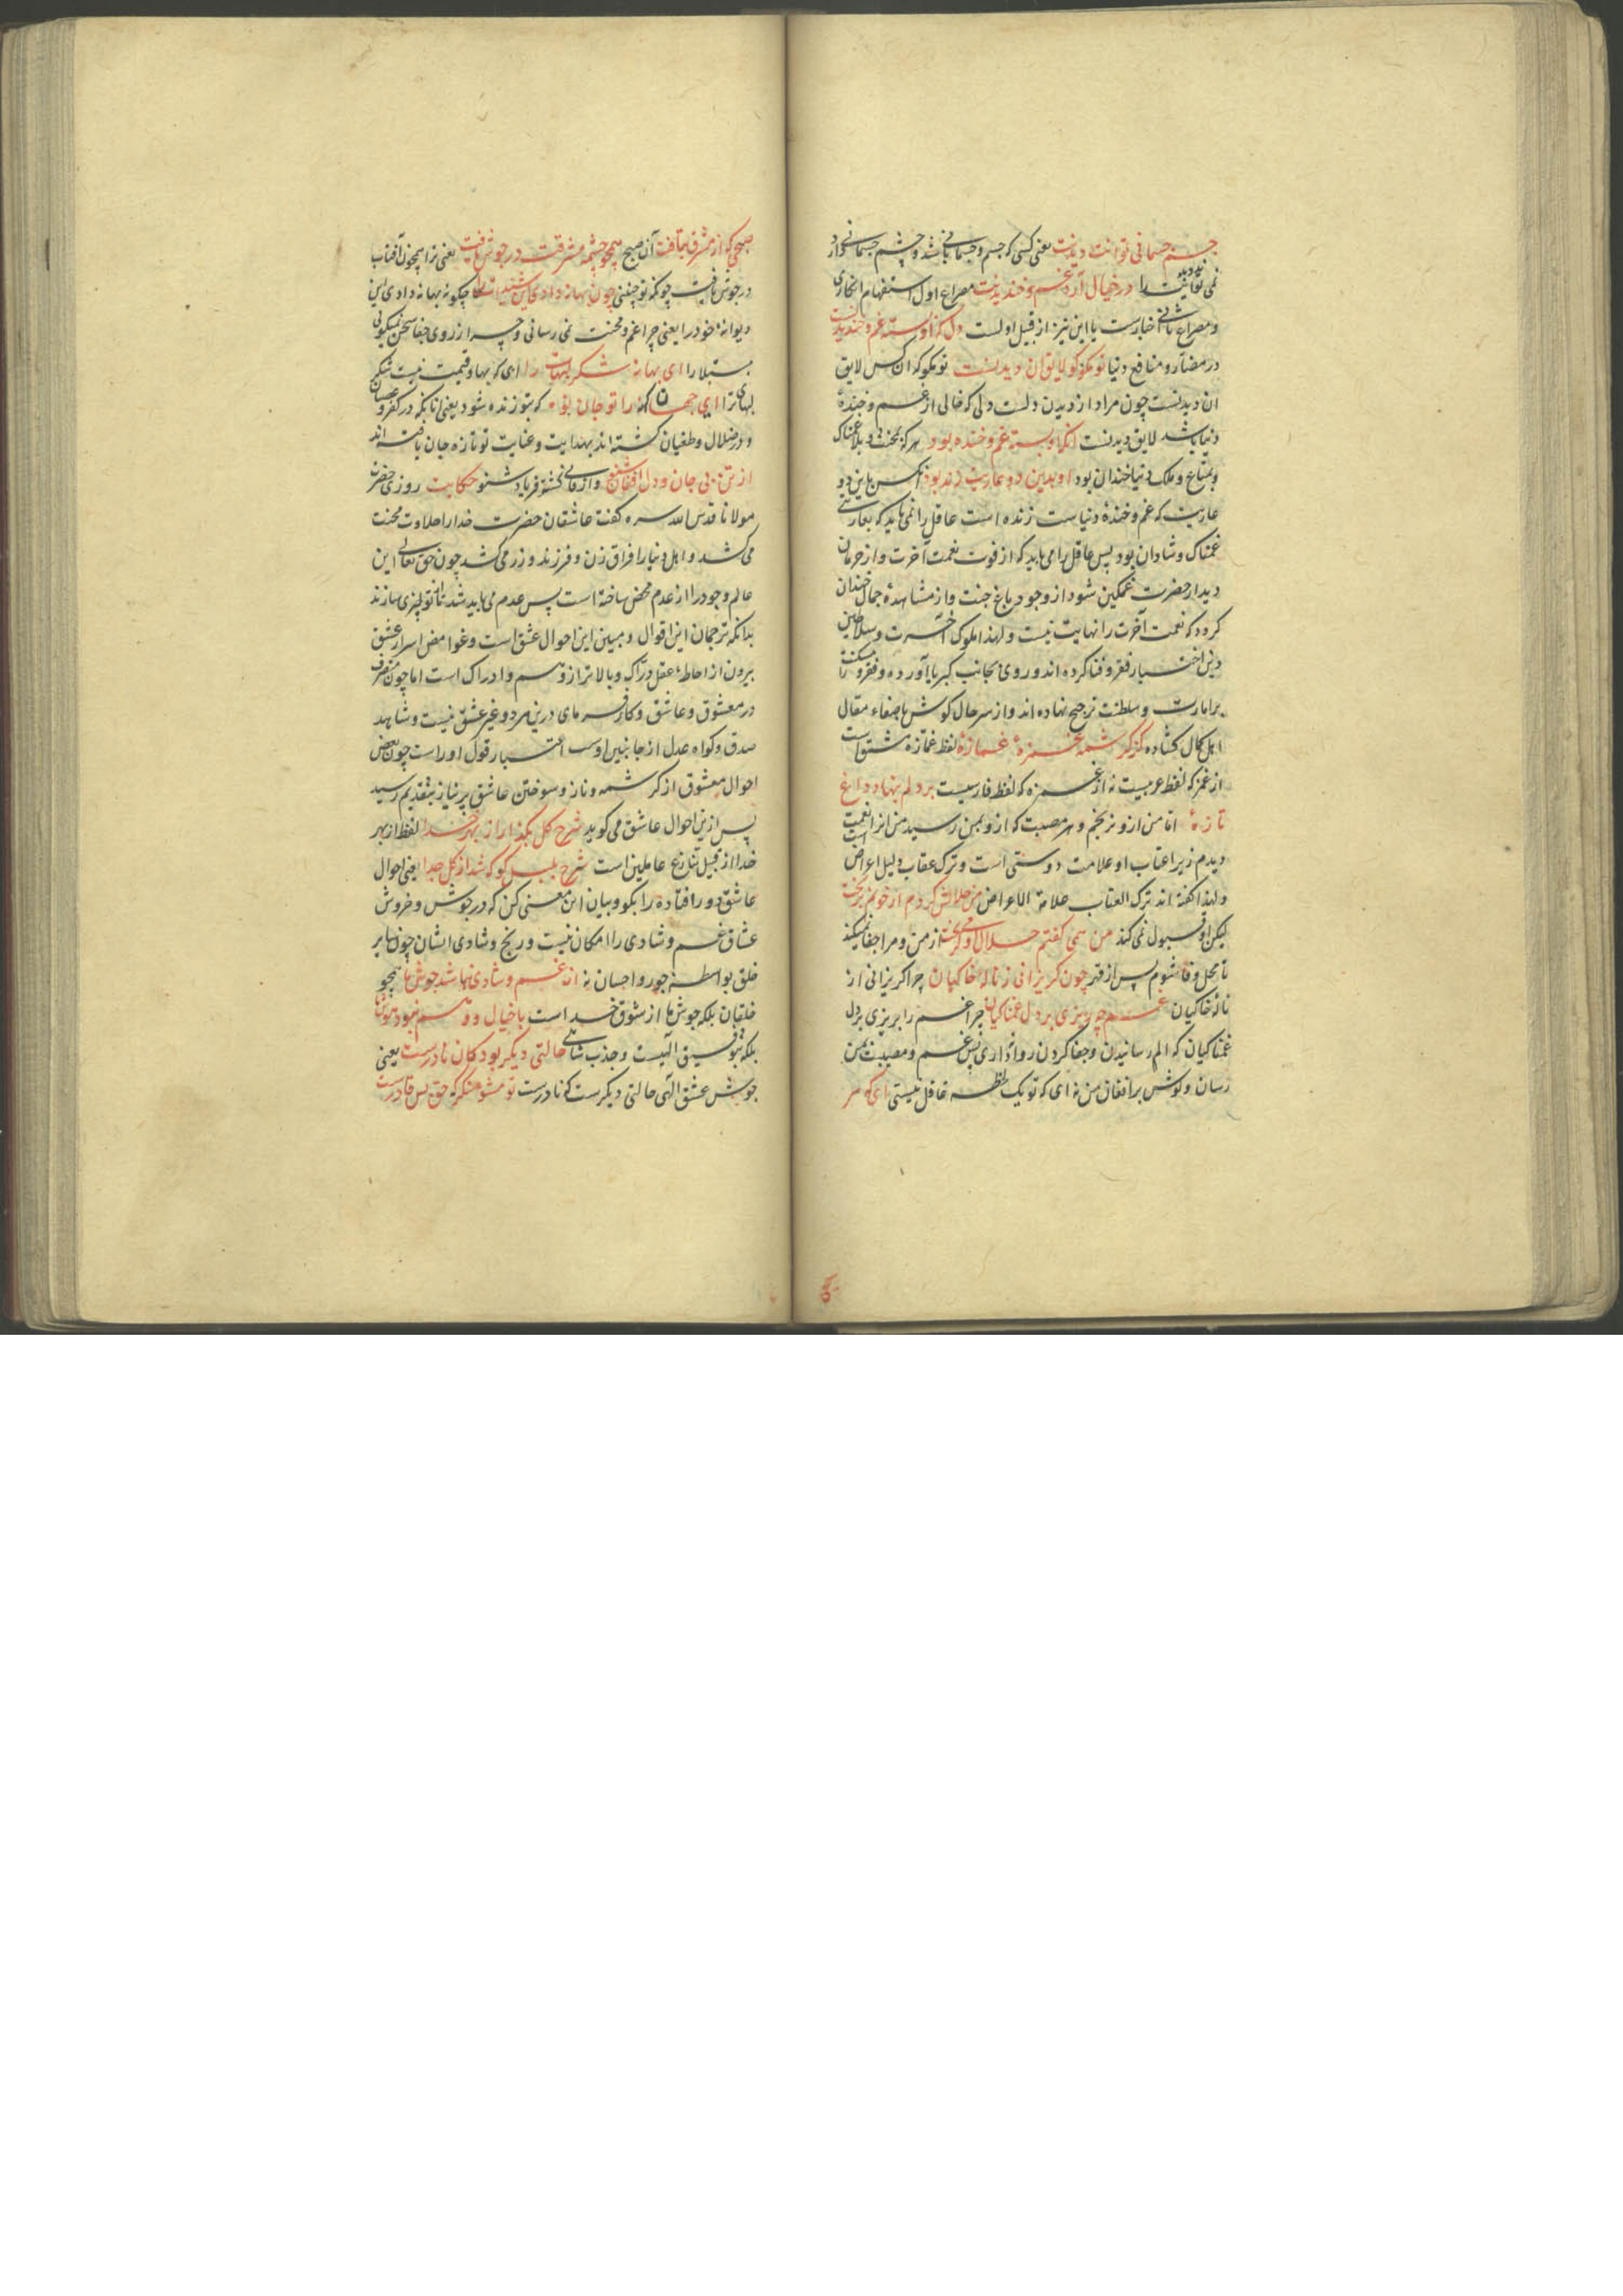 جسم جسمانی تواند دیدنت یعنی کسی که جسم و جسمانی باشد و چشم جسمانی دارد
نمی تواند دید ترا در خیال آرد غم و خندیدنت مصراع اول استفهام انکاری
و مصراع ثانی اخبارست یا این نیز از قبیل اولست دل که او بسته غم و خندیدنست
در مضار و منافع دنیا تو مگو کو لایق آن دیدنست تو مگو که آن کس لایق
آن دیدنست چون مراد از دیدن دلست دلی که خالی از غم و خندهٔ
دنیا باشد لایق دیدنست آنکه او بسته غم و خنده بود هر که بمحنت و بلا غمناک
و بمتاع و ملک دنیا خندان بود او بدین دو عاریت زنده بود آنکس باین دو
عاریت که غم و خندهٔ دنیاست زنده است عاقل را نمی باید که بعاریتی
غمناک و شادان بود پس عاقل را می باید که از فوت نعمت آخرت و از حرمان
دیدار حضرت غمگین شود از وجود باغ جنت و از مشاهدهٔ جمال خندان
گردد که نعمت آخرت را نهایت نیست و لهذا ملوک آخرت و سلاطین
دین اختیار فقر و فنا کرده اند و روی بجانب کبریا آورده و فقر و مسکنت را
بر امارت و سلطنت ترجیح نهاده اند و از سر حال گوش باصغاء مقال
اهل کمال گشاده کز کرشمه غمزهٔ غمازهٔ لفظ غمازه مشتق است
از غمز که لفظ عربیست نه از غمزه که لفظ فارسیست بر دلم بنهاد داغ
تازهٔ اما من ازو نرنجم و هر مصیبت که ازو بمن رسید من انرا نعمت
دیدم زیرا عتاب او علامت دوستی است و ترک عتاب دلیل اعراض است
و لهذا گفته اند ترک العتاب علامة الاعراض من حلالش کردم از خونم بریخت
لیکن او قبول نمی کند من همی گفتم حلال او می گریخت از من و مرا جفا نمیکند
تا محل وفا شوم پس از قهر چون گریزانی ز نالهٔ خاکیان چرا گریزانی از
نالهٔ خاکیان غم چه ریزی بر دل غمناکیان چرا غم را بریزی بر دل
غمناکیان که الم رسانیدن و جفا کردن روا داری پس غم و مصیبت بمن
رسان و گوش بر افغان من نه ای که تو یک لحظه غافل نیستی ای که هر
صبحی که از مشرق بتافت آن صبح همچو چشمه مشرقت در جوش یافت یعنی ترا همچون آفتاب
در جوش یافت چونکه تو چنینی چون بهانه دادی این شیدات را چگونه بهانه دادی این
دیوانهٔ خود را یعنی چرا غم و محنت نمی رسانی و چرا از روی جفا سخن نمیگویی
مبتلا را ای بهانه شکر لبهات را ای که بها و قیمت نیست شکر
لبهای ترا ای جهان کهنه را تو جان نو که بتو زنده شود یعنی تا بکه در کفر و عصیان
و در ضلال و طغیان گشته اند بهدایت و عنایت تو تازه جان یافته اند
از تن بی جان و دل افغان شنو و از فانی گشته فریاد شنو حکایت روزی حضرت
مولانا قدس الله سره گفت عاشقان حضرت خدا را حلاوت محنت
می کشد و اهل دنیا را فراق زن و فرزند و زر می کشد چون حق تعالی این
عالم وجود را از عدم محض ساخته است پس عدم می باید شد تا از تو چیزی سازند
بدانکه ترجمان این اقوال و مبین این احوال عشق است و غوامض اسرار عشق
بیرون از احاطهٔ عقل درّاک و بالاتر از وهم و ادراک است اما چون متصرف
در معشوق و عاشق و کارفرمای درین مرد و غیر عشق نیست و شاهد
صدق و گواه عدل از جانبین اوست اعتبار قول او راست چون بعض
احوال معشوق از کرشمه و ناز و سوختن عاشق پر نیاز بتقدیم رسید
پس ازین احوال عاشق می گوید شرح گل بگذار از بهر خدا لفظ از بهر
خدا از قبیل تنازع عاملین است شرح بلبل گو که شد از گل جدا یعنی احوال
عاشق دور افتاده را بگو و بیان این معنی کن که در جوش و خروش
عشاق غم و شادی را امکان نیست و رنج و شادی ایشان چون سایر
خلق بواسطه جور و احسان نه از غم و شادی نباشد جوش ما همچو
خلقان بلکه جوش ما از شوق خداست با خیال و وهم نبود هوش ما
بلکه بتوفیق الهیست و جذب حالتی دیگر بود کان نادرست یعنی
جوشش عشق الهی حالتی دیگرست که نادرست تو مشو منکر که حق بس قادرست